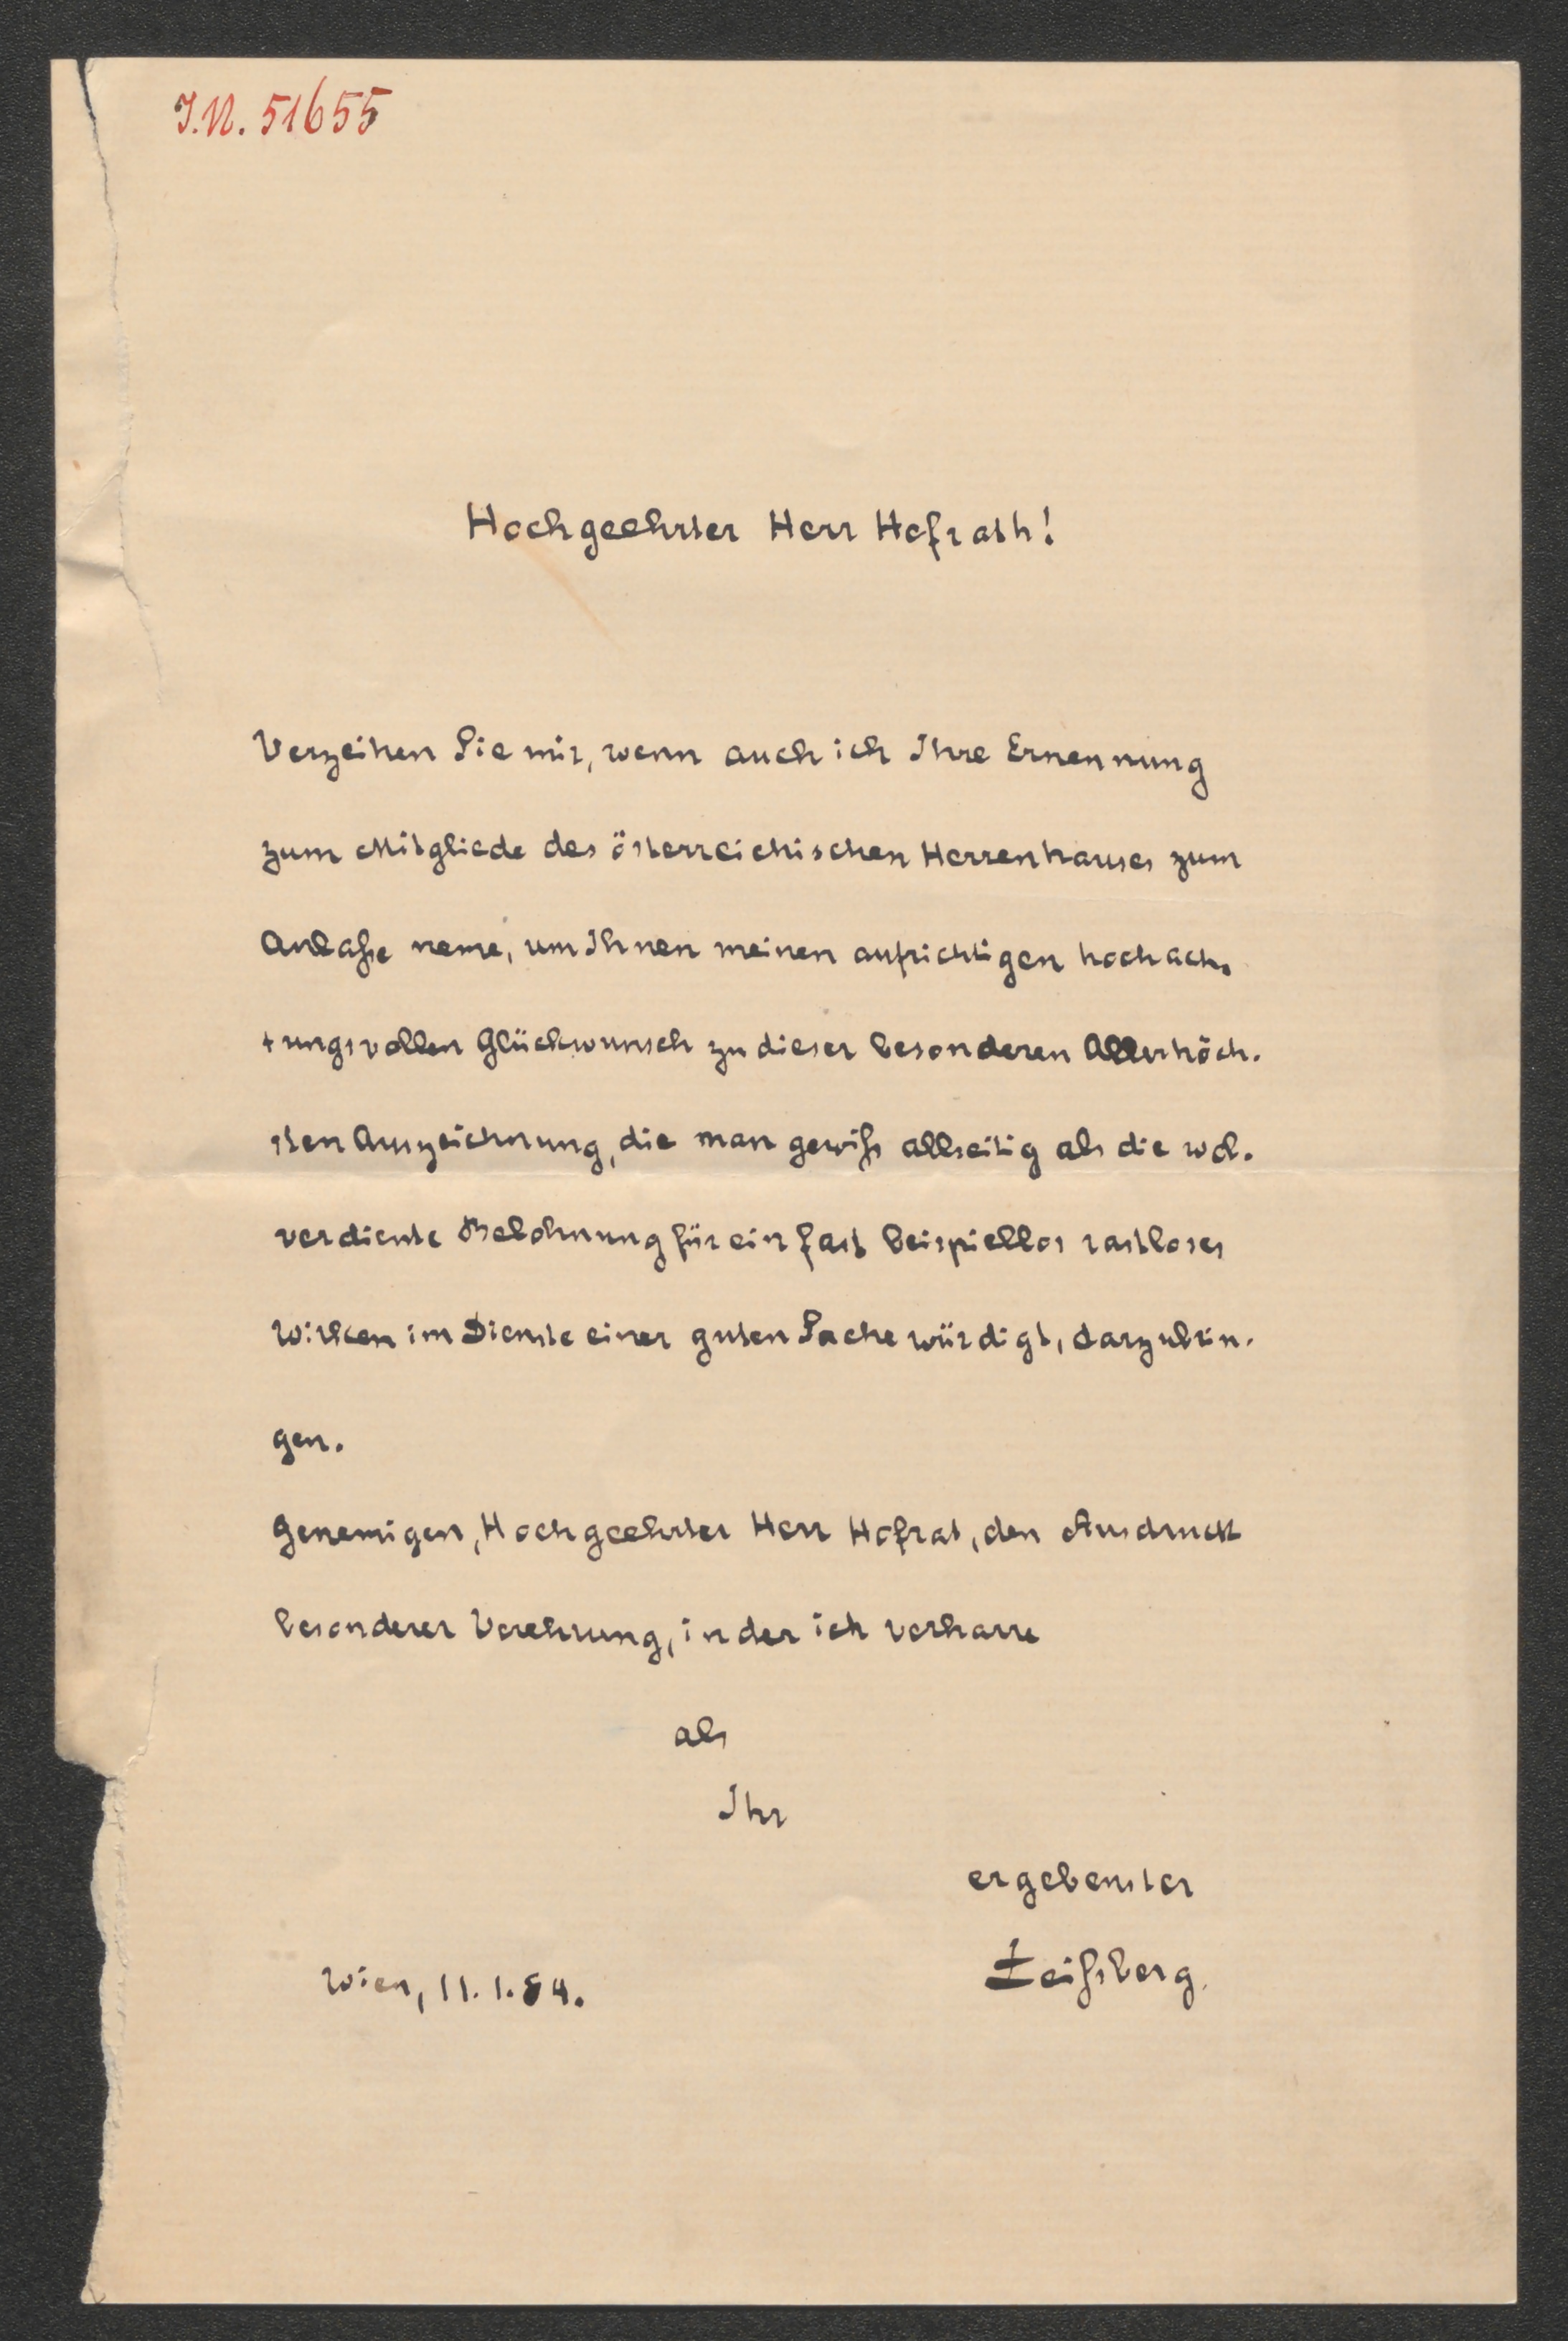 I.N. 51655
Hochgeehrter Herr Hofrath!
Verzeihen Sie mir, wenn auch ich Ihre Ernennung
zum Mitgliede des österreichischen Herrenhauses zum
Anlaße neme, um Ihnen meinen aufrichtigen hochach-
tungsvollen Glückwunsch zu dieser besonderen Allerhöch-
sten Auszeichnung, die man gewiß allseitig als die wol-
verdiente Belohnung für ein fast beispiellos rastloses
Wirken im Dienste einer guten Sache würdigt, darzubrin-
gen.
Genemigen, Hochgeehrter Herr Hofrat, den Ausdruck
besonderer Verehrung, in der ich verharre
als
Ihr
ergebenster
Zeißberg.
Wien, 11.1.84.